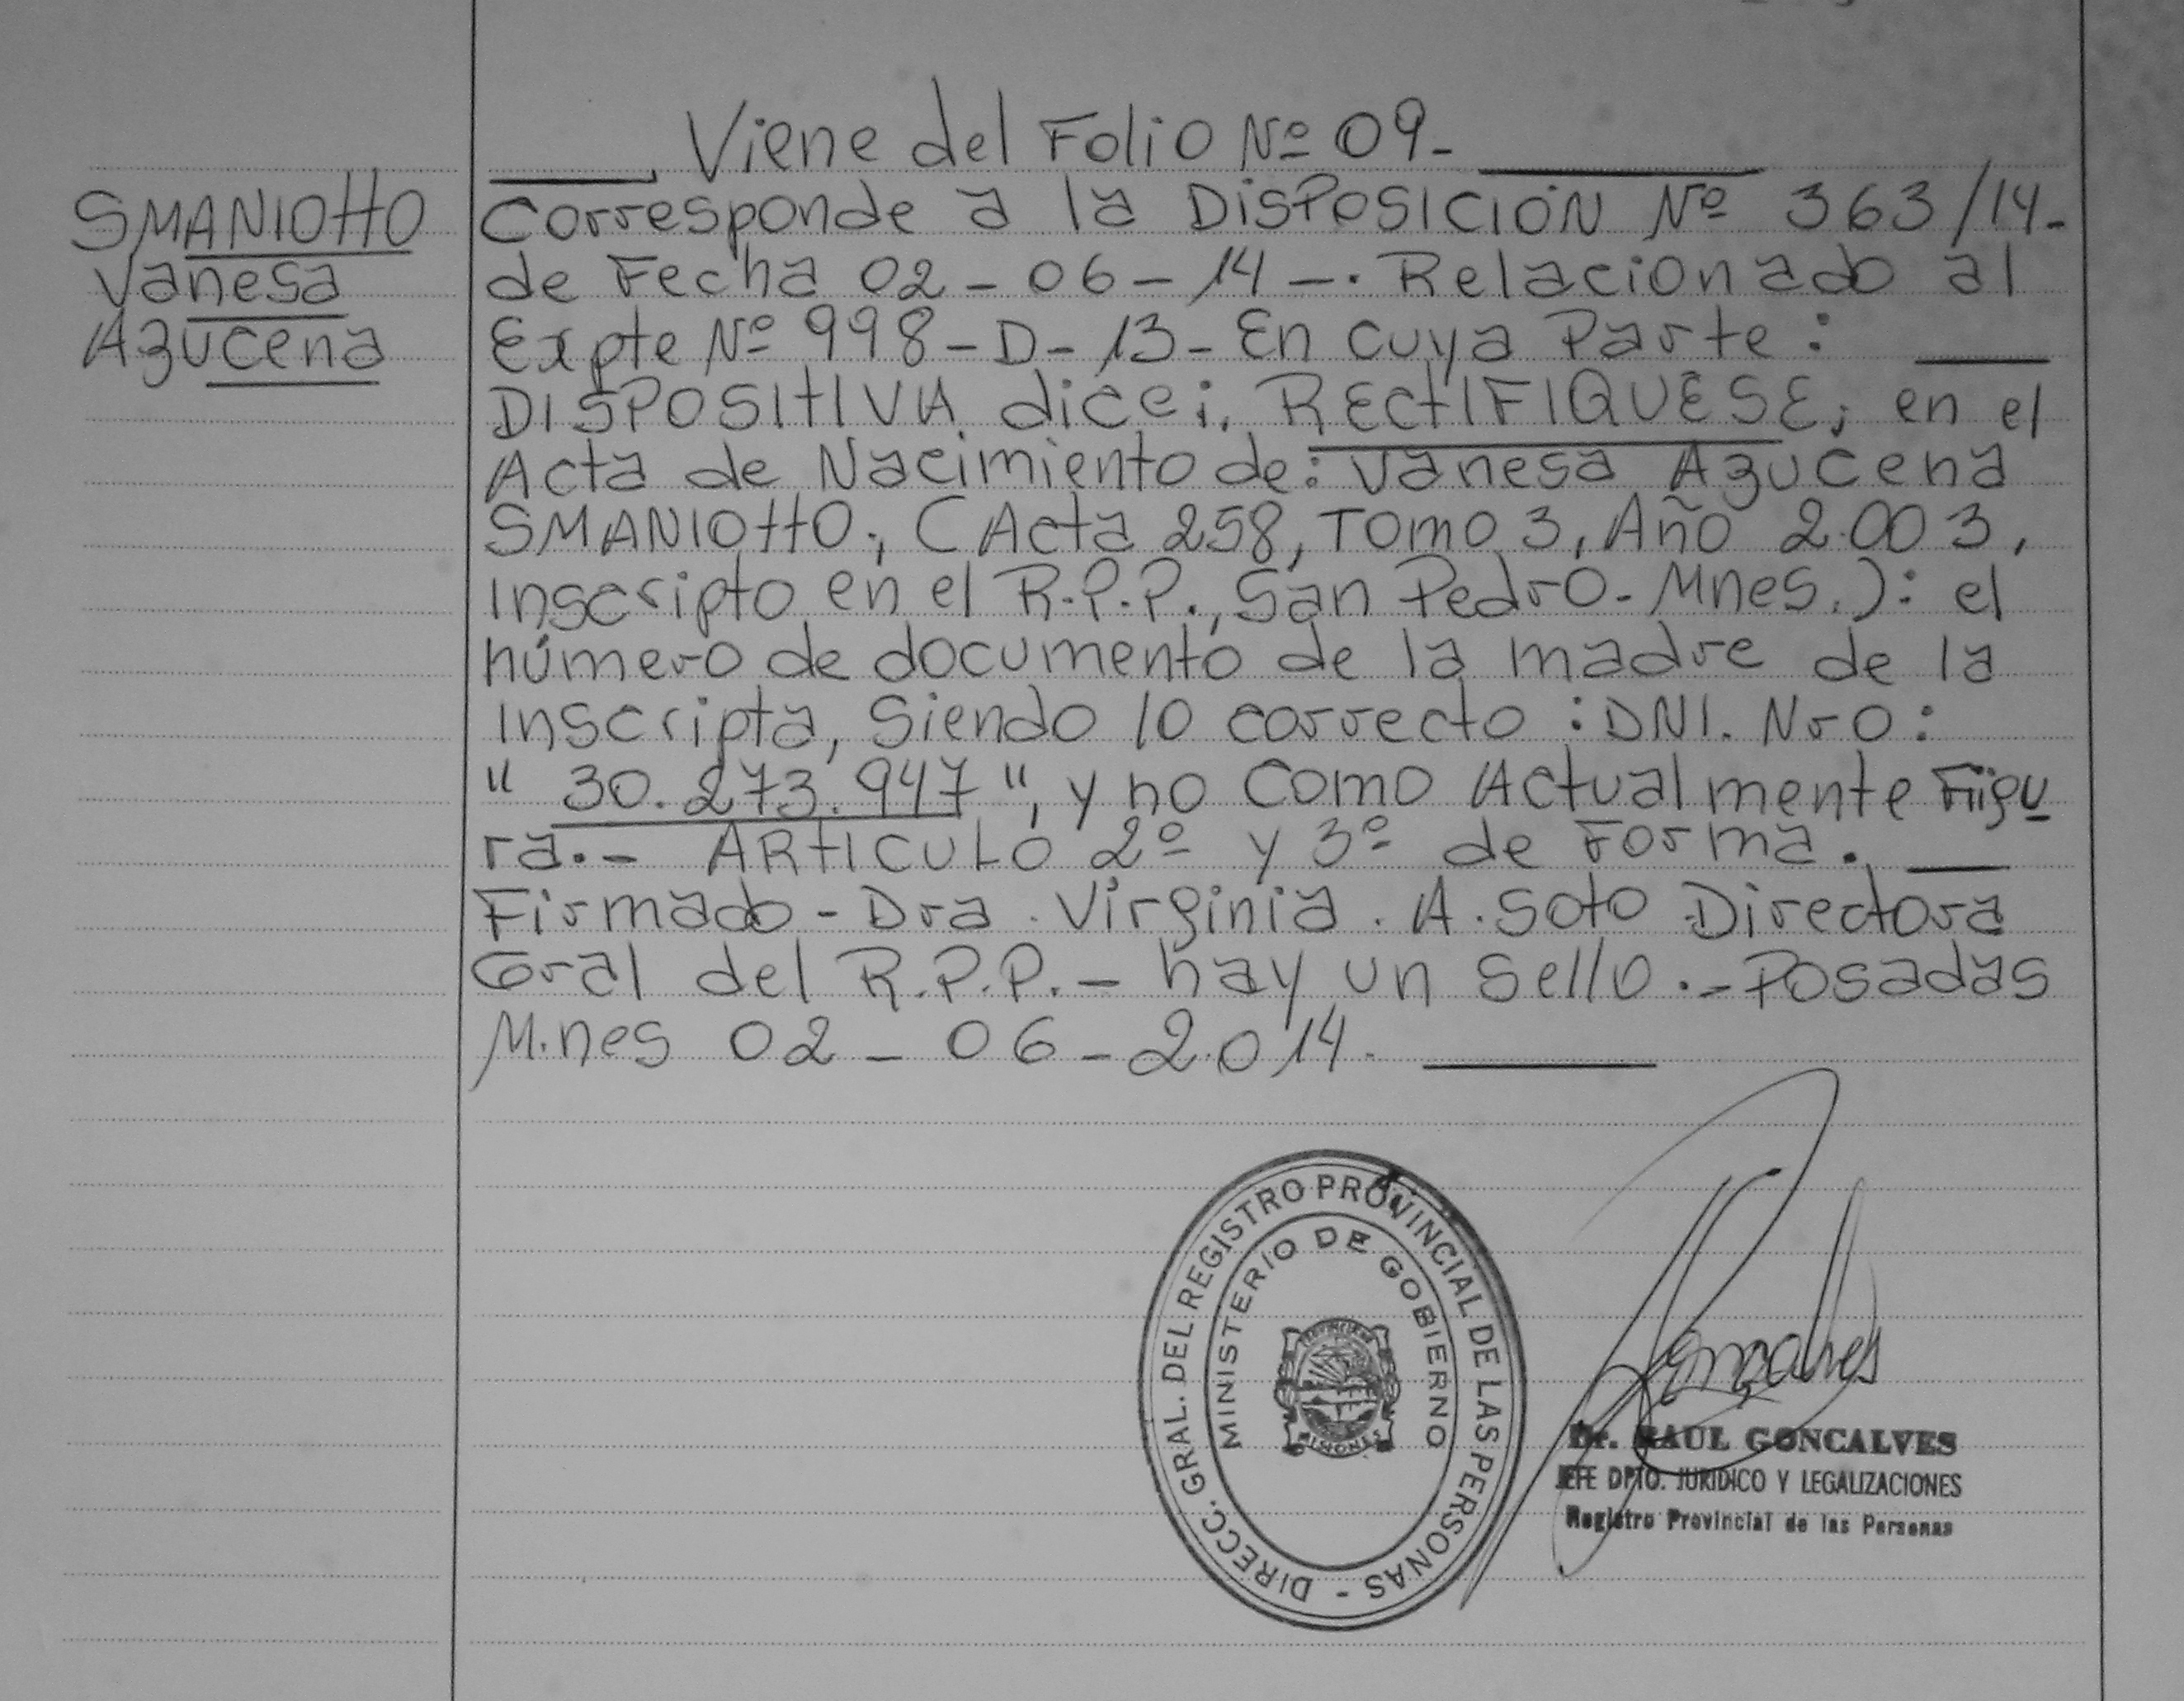 Viene del Folio Nº 09-
SMANIOTTO
Vanesa
Azucena
Corresponde a la DISPOSICIÓN Nº 363/14-
de Fecha 02-06-14-. Relacionado al
Expte Nº 998-D-13- En cuya Parte:
DISPOSITIVA dice:. RECTIFIQUESE; en el
Acta de Nacimiento de: Vanesa Azucena
SMANIOTTO, (Acta 258, Tomo 3, Año 2.003,
Inscripto en el R.P.P., San Pedro-Mnes.): el
número de documento de la madre de la
Inscripta, Siendo lo correcto: DNI. Nro:
"30.273.947", y no Como Actualmente Figu
ra.- ARTICULO 2º y 3º de Forma.
Firmado-Dra. Virginia. A. Soto Directora
Gral del R.P.P.- hay un Sello.-Posadas
M.nes 02-06-2.014.
DIRECC. GRAL. DEL REGISTRO PROVINCIAL DE LAS PERSONAS -
MINISTERIO DE GOBIERNO
MISIONES
Goncalves
Dr. RAUL GONCALVES
JEFE DPTO. JURIDICO Y LEGALIZACIONES
Registro Provincial de las Personas